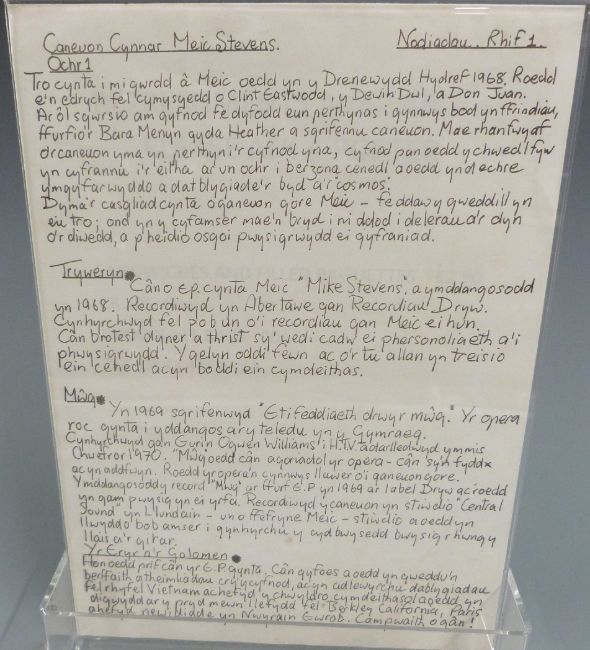 Caneuon Cynnar Meic Stevens. Nodiadau.. Rhif 1.
Ochr 1
Tro cynta i mi gwrdd â Meic oedd yn y Drenewydd Hydref 1968. Roedd
e'n edrych fel cymysgedd o Clint Eastwood, y Dewin Dwl, a Don Juan.
Ar ôl sgwrsio am gyfnod fe dyfodd eun perthynas i gynnwys bod yn ffrindiau,
ffurfio'r Bara Menyn gyda Heather a sgrifennu caneuon. Mae rhan fwyaf
o'r caneuon yma yn perthyn i'r cyfnod yna, cyfnod pan oedd y chwedl fyw
yn cyfrannu i'r eitha ar un ochr i berzona cenedl a oedd yn dechre
ymgyfarwyddo a datblygiade'r byd a'r cosmos.
Dyma'r casgliad cynta o ganeuon gore Meic - fe ddaw y gweddill yn
eu tro; ond yn y cyfamser mae'n bryd i mi ddod i delerau a'r dyn
o'r diwedd, a pheidio osgoi pwysigrwydd ei gyfraniad.
Tryweryn
Cân o E.P. cynta Meic "Mike Stevens", a ymddangosodd
yn 1968. Recordiwyd yn Abertawe gan Recordiau Dryw.
Cynhyrchwyd fel pob un o'i recordiau gan Meic ei hun.
Cân brotest dyner a thrist sy' wedi cadw ei phersonoliaeth a'i
phwysigrwydd. Y gelyn oddi fewn ac o'r tu allan yn treisio
ein cenedl ac yn boddi ein cymdeithas.
Mŵg
Yn 1969 sgrifenwyd "Etifeddiaeth drwy'r mŵg." Yr opera
roc gynta i yddangos ar y teledu yn y Gymraeg.
Cynhyrchwyd gan Euryn Ogwen Williams i H.T.V. a darlledwyd ym mis
Chwefror 1970. "Mŵg" oedd cân agoriadol yr opera - cân sy'n fydd
ac yn addfwyn. Roedd yr opera'n cynnwys llawer o'i ganeuon gore.
Ymddangosodd y record "Mŵg" ar ffurf E.P yn 1969 ar label Dryw ac roedd
yn gam pwysig yn ei yrfa. Recordiwyd y caneuon yn stiwdio "Central
Sound" yn Llundain - un o ffefryne Meic - stiwdio a oedd yn
llwyddo bob amser i gynhyrchu y cydbwysedd bwysig rhwng y
llais a'r gitar.
Yr Eryr a'r Golomen
Hon oedd prif cân yr E.P. gynta. Cân gyfoes a oedd yn gweddu'n
berffaith a theimladau cry' y cyfnod, ac yn adlewyrchu dablygiadau
fel rhyfel Vietnam a chefyd y chwyldro cymdeithasol a oedd yn
digwydd ar y pryd mewn llefydd fel Berkley California, Paris
a hefyd newidiade yn Nwyrain Ewrob. Campwaith o gân!